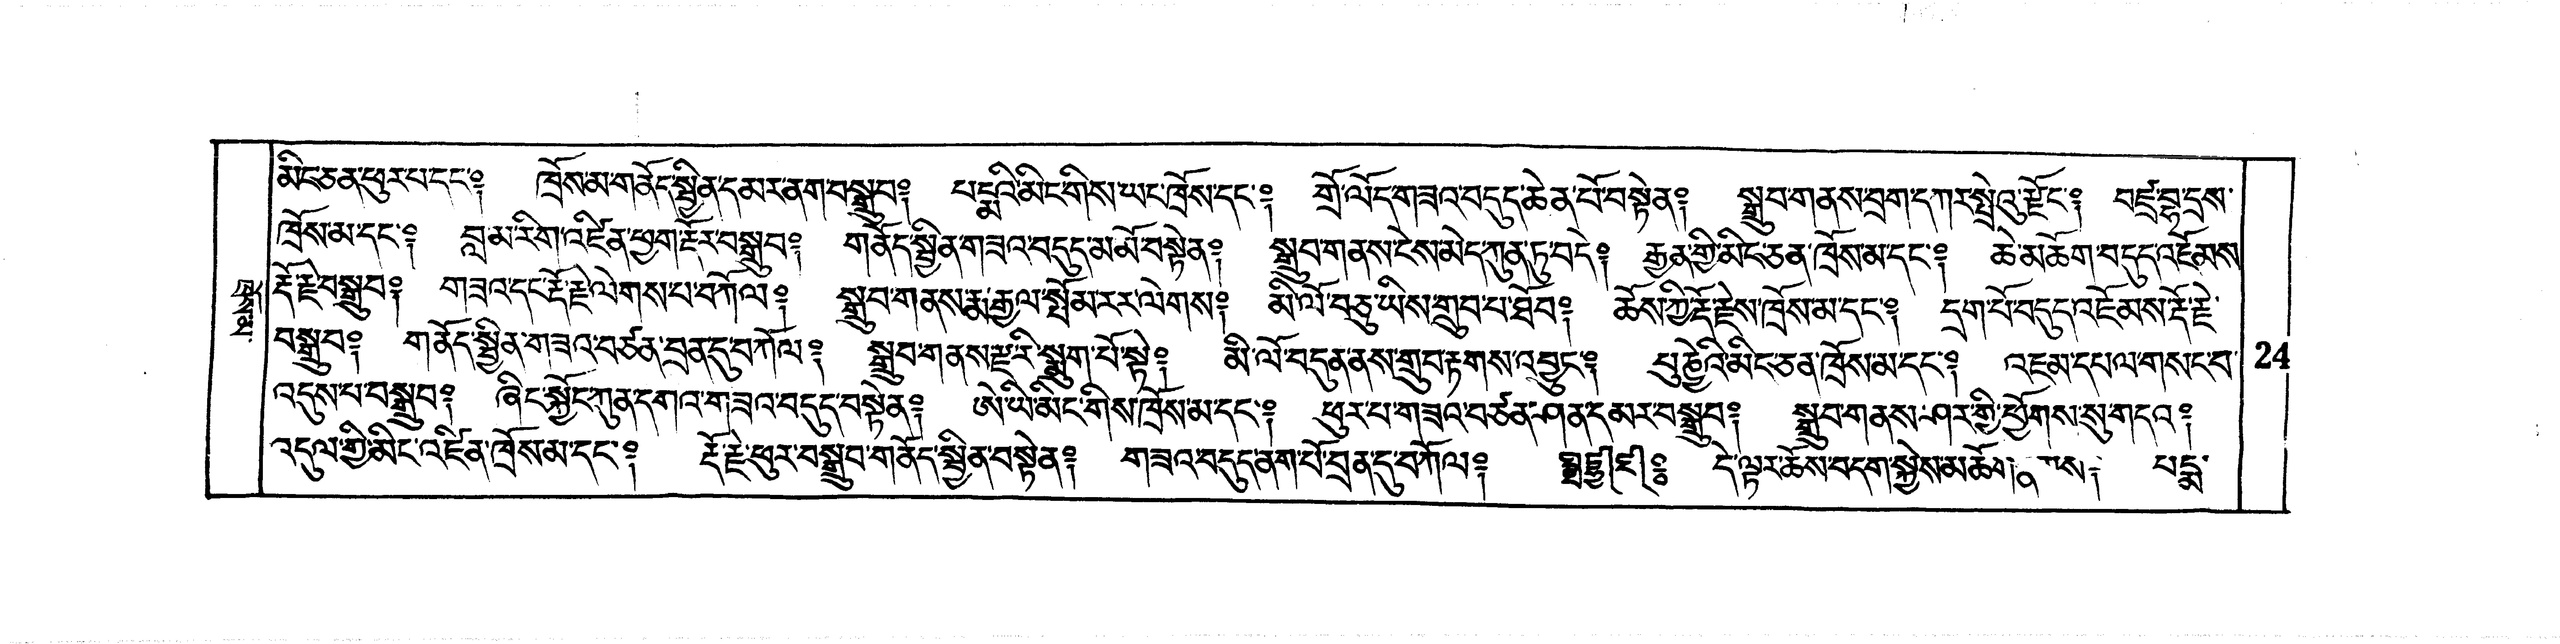 མིང་ཅན་ཕུར་པ་དང་༔ ཁྲོས་མ་གནོད་སྦྱིན་དམར་ནག་བསྒྲུབ༔ པདྨའི་མིང་གིས་ཡང་ཁྲོས་དང་༔ གྲོ་ལོད་གཟའ་བདུད་ཆེན་པོ་བསྟེན༔ སྒྲུབ་གནས་བྲག་དཀར་སྤྲེའུ་རྫོང་༔ བཛྲ་བྷ་དྲས་
ཁྲོས་མ་དང་༔ བླ་མ་རིག་འཛིན་ཕྱག་རྡོར་བསྒྲུབ༔ གནོད་སྦྱིན་གཟའ་བདུད་མ་མོ་བསྟེན༔ སྒྲུབ་གནས་ངེས་མེད་ཀུན་ཏུ་བདེ༔ རྒྱན་གྱི་མིང་ཅན་ཁྲོས་མ་དང་༔ ཆེ་མཆོག་བདུད་འཇོམས་
རྡོ་རྗེ་བསྒྲུབ༔ གཟའ་དང་རྡོ་རྗེ་ལེགས་པ་བཀོལ༔ སྒྲུབ་གནས་རྣམ་རྒྱལ་སྤོམ་རར་ལེགས༔ མི་ལོ་བཅུ་ཡིས་གྲུབ་པ་ཐོབ༔ ཆོས་ཀྱི་རྡོ་རྗེས་ཁྲོས་མ་དང་༔ དྲག་པོ་བདུད་འཇོམས་རྡོ་རྗེ་
བསྒྲུབ༔ གནོད་སྦྱིན་གཟའ་བཙན་བྲན་དུ་བཀོལ༔ སྒྲུབ་གནས་རྫ་རི་སྨུག་པོ་སྟེ༔ མི་ལོ་བདུན་ནས་གྲུབ་རྟགས་འབྱུང་༔ པུཎྱེའི་མིང་ཅན་ཁྲོས་མ་དང་༔ འཇམ་དཔལ་གསང་བ་
འདུས་པ་བསྒྲུབ༔ ཞིང་སྐྱོང་ཀུན་དགའ་གཟའ་བདུད་བསྟེན༔ ཨེ་ཡི་མིང་གིས་ཁྲོས་མ་དང་༔ ཕུར་པ་གཟའ་བཙན་ཤན་དམར་བསྒྲུབ༔ སྒྲུབ་གནས་ཤར་གྱི་ཕྱོགས་སུ་གདའ༔
འདུལ་གྱི་མིང་འཛིན་ཁྲོས་མ་དང་༔ རྡོ་རྗེ་ཕུར་བསྒྲུབ་གནོད་སྦྱིན་བསྟེན༔ གཟའ་བདུད་ནག་པོ་བྲན་དུ་བཀོལ༔ དེ་ལྟར་ཆོས་བདག་སྐྱེས་མཆོག་ པདྨ་
24